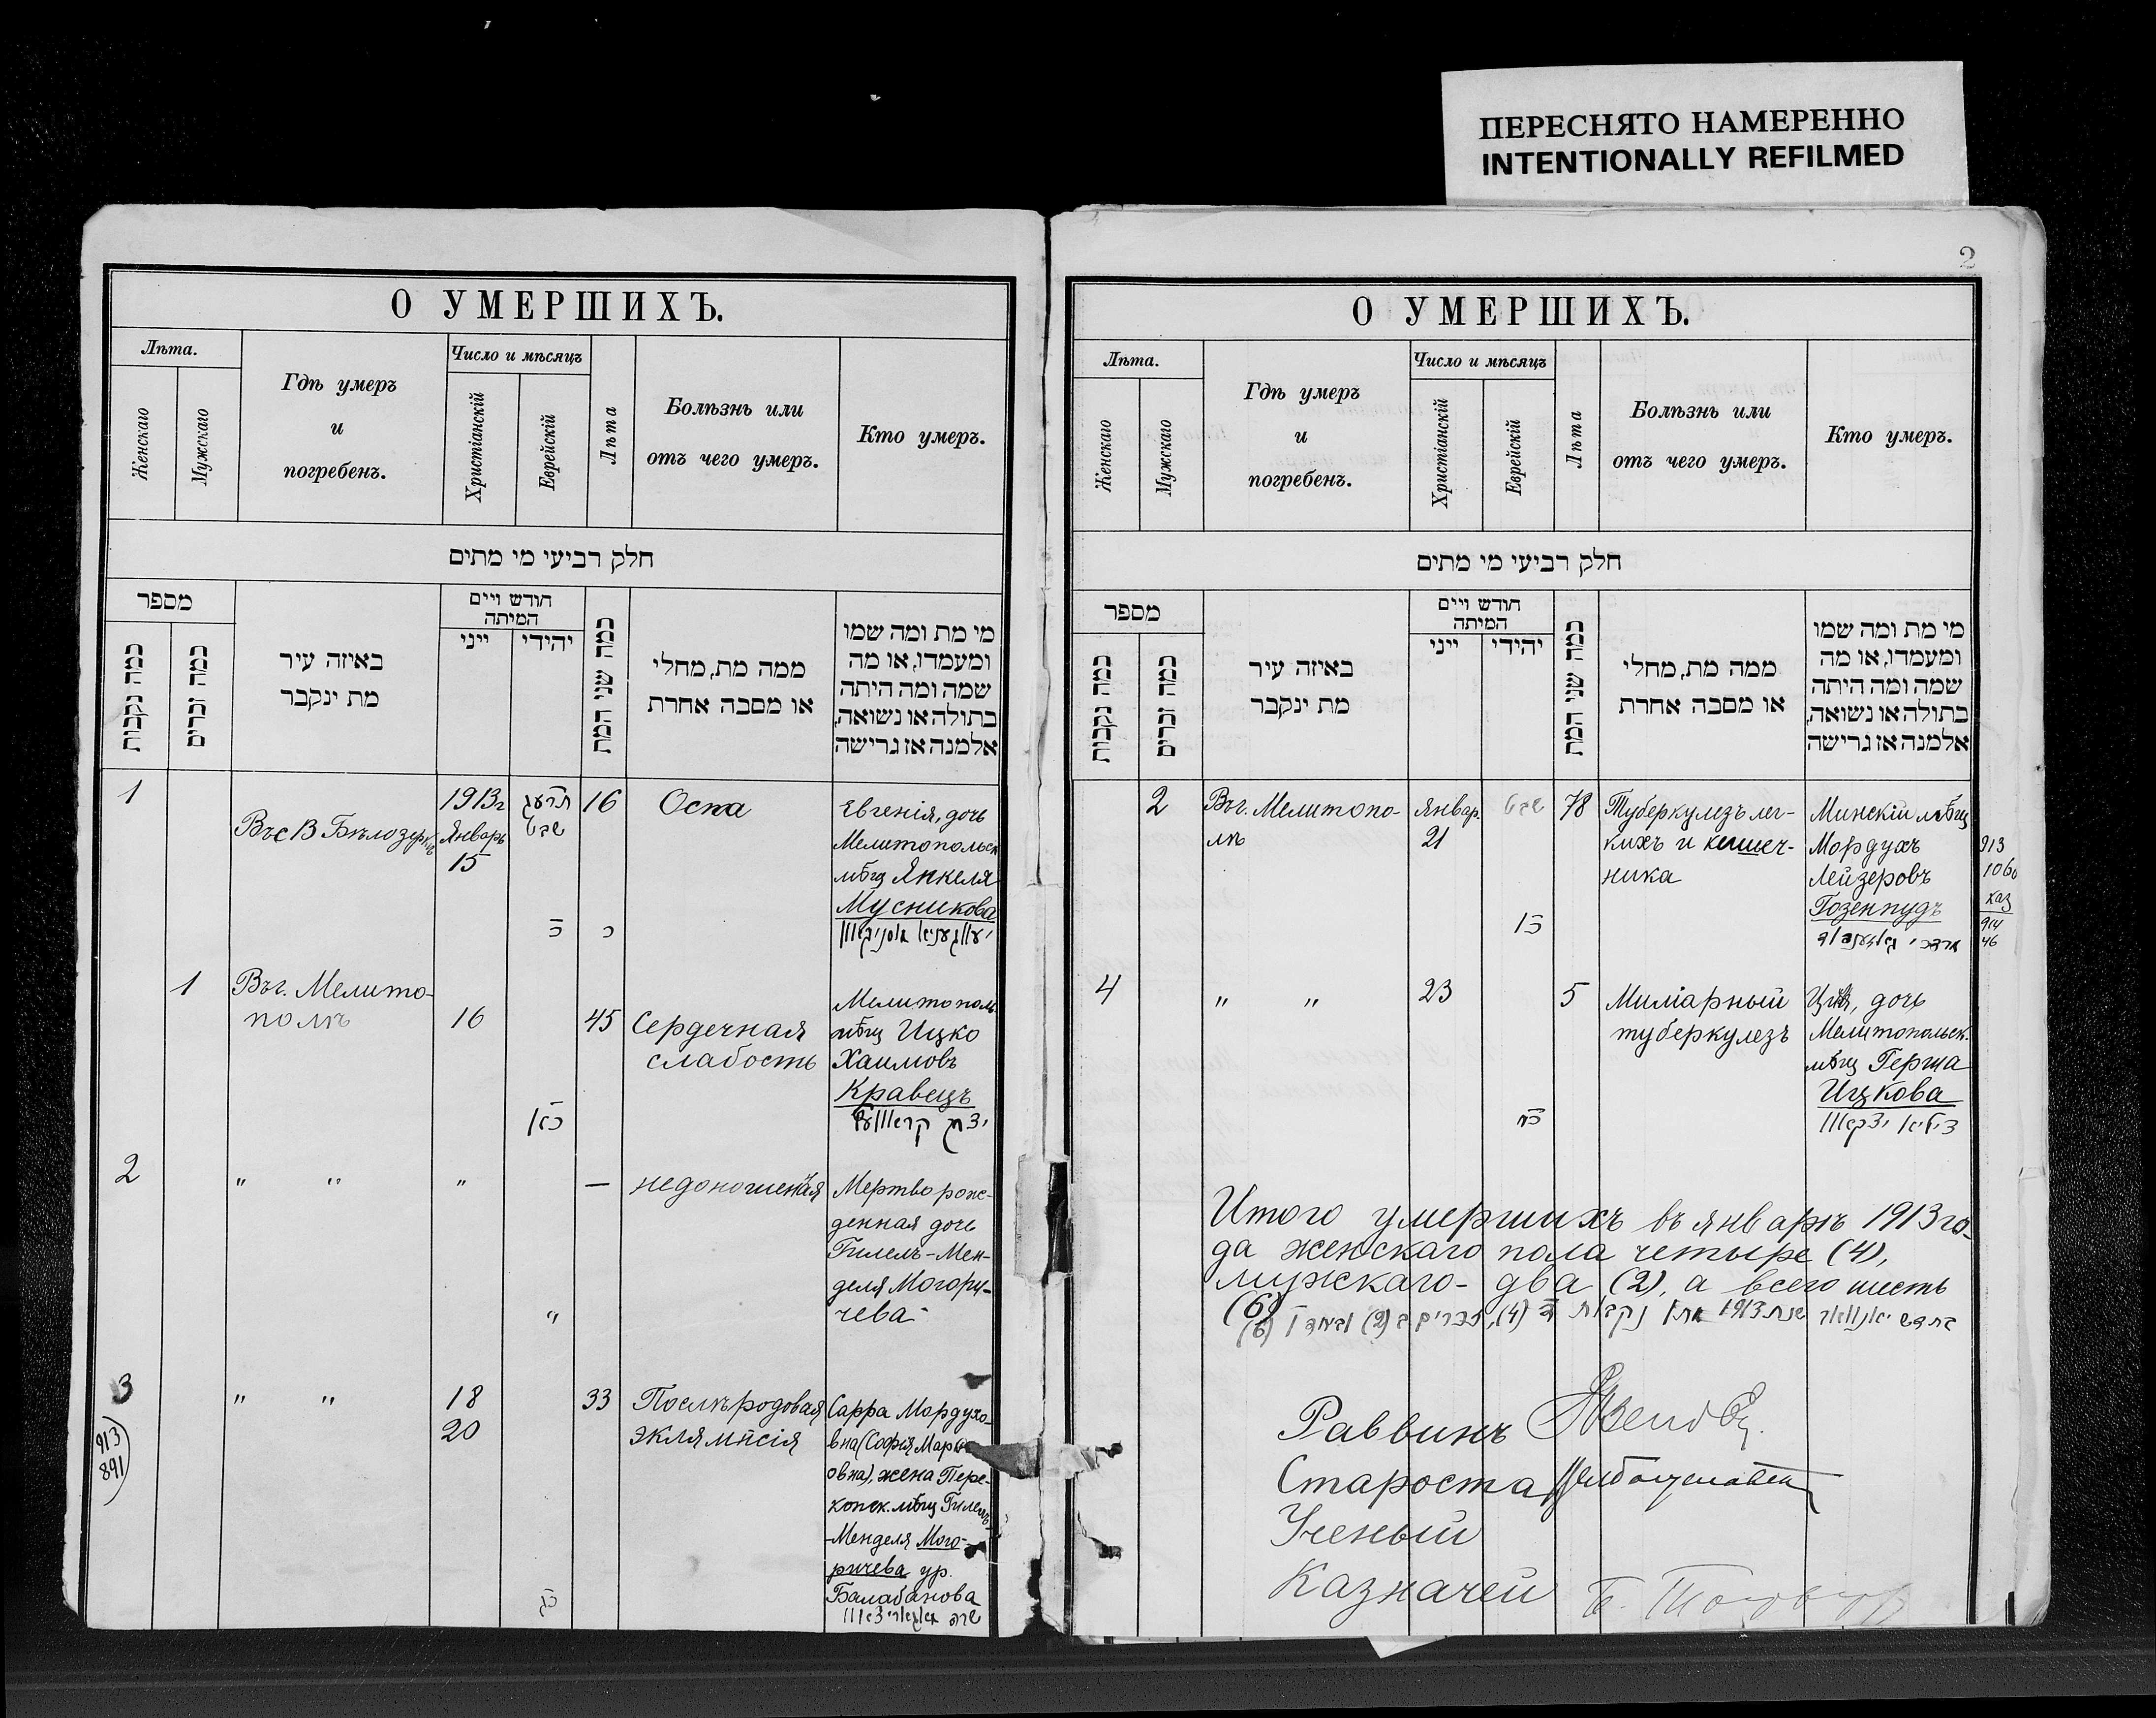 ПЕРЕСНЯТО НАМЕРЕННО
INTENTIONALLY REFILMED
О УМЕРШИХЪ.
Лѣта.
Женскаго
Мужскаго
Гдѣ умеръ
и
погребенъ.
Число и мѣсяцъ
Христіанскій
Еврейскій
Лѣта
Болѣзнь или
отъ чего умеръ.
Кто умеръ.
חלק רביעי מי מתים
מספר
כמה נקבות
כמה זכרים
באיזה עיר
מת ינקבר
חודש ויים
המיתה
ייני
יהידי
כמה שני המת
ממה מת, מחלי
או מסבה אחרת
מי מת ומה שמו
ומעמדו, או מה
שמה ומה היתה
בתולה או נשואה,
אלמנה אז גרישה
1
Въ с В Бѣлозеркѣ
1913г
Январь
15
תרעג
שבט
כ
16
Оспа
Евгенія, дочь
Мелитопольск
мѣщ Янкеля
Мусникова
1
Въ г. Мелито-
полѣ
16
כא
45
Сердечная
слабость
Мелитополь.
мѣщ Ицко
Хаимовъ
Кравецъ
2
" " "
"
—
недоношеная
Мертворож-
денная дочь
Гилель-Мен-
деля Могори-
чева
3
913
891
" "
18
20
כג
33
Послѣродовая
эклямпсія
Сарра Мордухо-
вна (Софія Марк
овна), жена Пере-
копск. мѣщ Гилель-
-Менделя Мого-
ричева ур.
Балабанова
2
О УМЕРШИХЪ.
Лѣта.
Женскаго
Мужскаго
Гдѣ умеръ
и
погребенъ.
Число и мѣсяцъ
Христіанскій
Еврейскій
Лѣта
Болѣзнь или
отъ чего умеръ.
Кто умеръ.
חלק רביעי מי מתים
מספר
כמה נקבות
כמה זכרים
באיזה עיר
מת ינקבר
חודש ויים
המיתה
ייני
יהידי
כמה שני המת
ממה מת, מחלי
או מסבה אחרת
מי מת ומה שמו
ומעמדו, או מה
שמה ומה היתה
בתולה או נשואה,
אלמנה אז גרישה
2
Въ г. Мелитопо-
лѣ
Январ.
21
שבט
כו
78
Туберкулезъ лег-
кихъ и кишеч-
ника
Минскій мѣщ
Мордухъ
Лейзеровъ
Гозенпудъ
913
1060
каз
914
46
4
" "
23
כח
5
Миліарный
туберкулезъ
дочь
Мелитопольск.
мѣщ Герша
Ицкова
Итого умершихъ въ январѣ 1913 го-
да женскаго пола четыре (4),
мужскаго - два (2), а всего шесть
(6)
Раввинъ
Староста
Ученый
Казначей